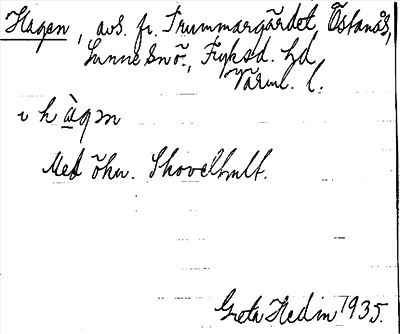 Hagen, avs. fr. Trummargärdet, Östanås,
Sunne snö., Fryksd. hd
Värml. l.
i hàgm
Med ökn. Skovelhult.
Greta Hedin 1935.